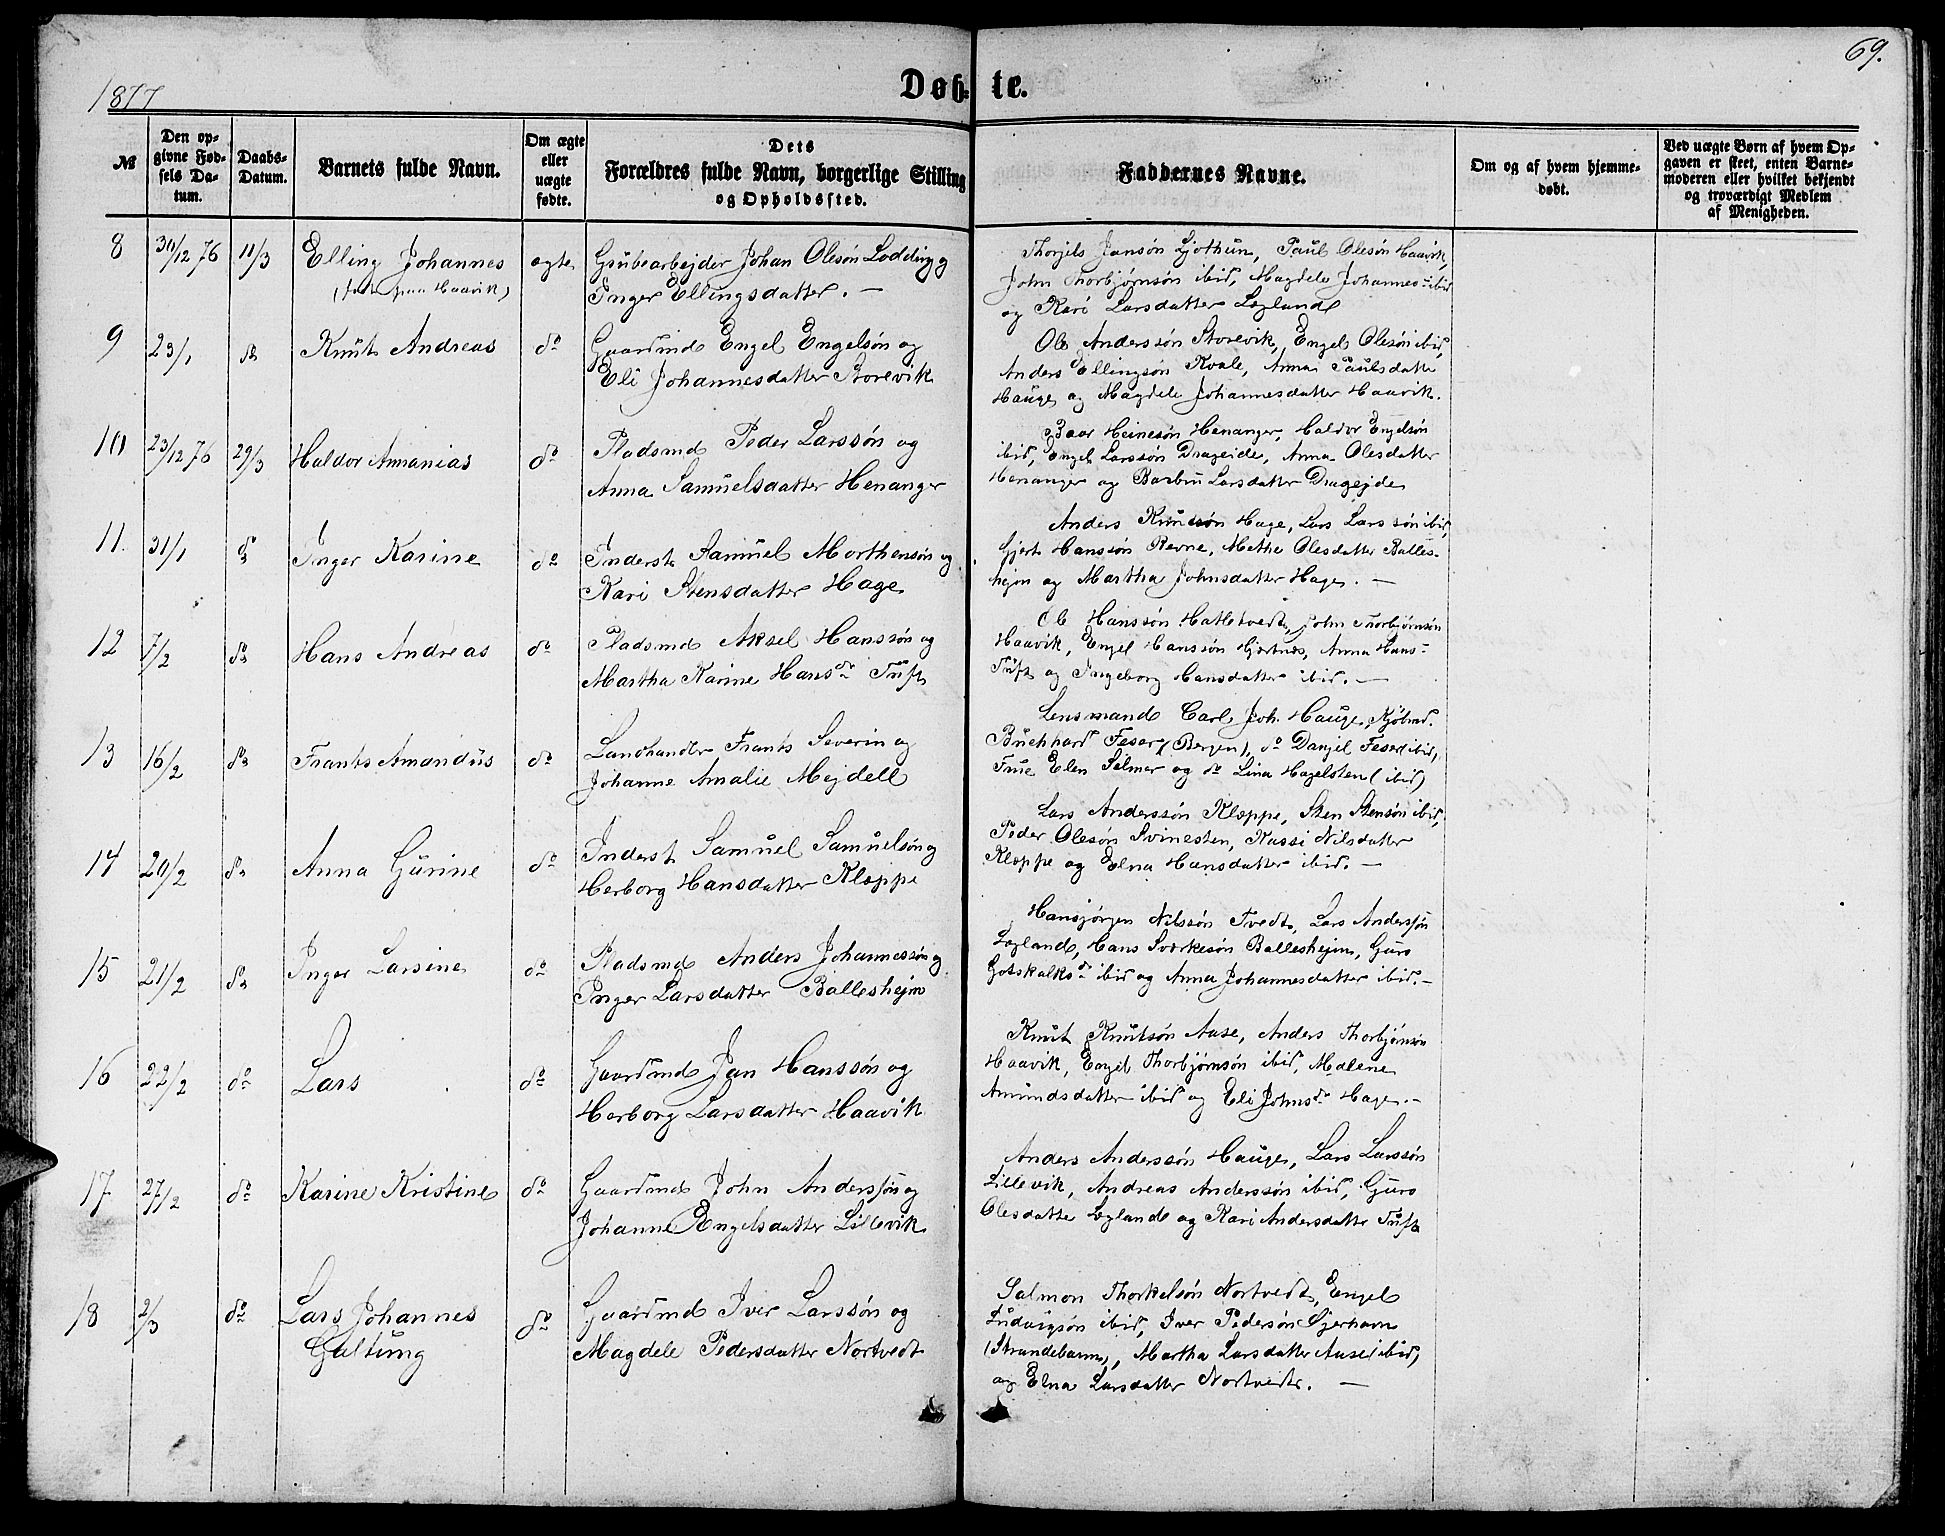 69.
1877
Døbte.
№
Den opgivne Fødsels Datum.
Daabs-Datum.
Barnets fulde Navn.
Om ægte eller uægte fødte.
Dets Forældres fulde Navn, borgerlige Stilling og Opholdssted.
Faddernes Navne.
Om og af hvem hjemmedøbt.
Ved uægte Børn af hvem Opgaven er skeet, enten Barnemoderen eller hvilket bekjendt og troværdigt Medlem af Menigheden.
8 30/12 76 11/3 Elling Johannes ægte Grubearbejder Johan Olesøn Lodding og
Inger Ellingsdatter. —
Thorjels Jansøn Ljothun, Paul Olesøn Haavik,
John Thorbjørnsøn ibid, Magdele Johannes- ibid
og Kari Larsdatter Legland
9 23/1 do Knut Andreas do Gaardmd Engel Engelsøn og
Eli Johannesdatter Storevik
Ole Anderssøn Storevik, Engel Olesøn ibid,
Anders Ellingsøn Kvale, Anna Paulsdatter
Hauge og Magdele Johannesdatter Haavik.
10 23/12 76 29/3 Haldor Annanias do Pladsmd Peder Larssøn og
Anna Samuelsdatter Henanger
Baar Heinesøn Henanger, Haldor Engelsøn
ibid, Engel Larssøn Drageide, Anna Olesdatter
Henanger og Barbru Larsdatter Dragejde
11. 31/1 do Inger Karine do Inderst Samuel Morthensøn og
Kari Stensdatter Hage
Anders Knudsøn Hage, Lars Larssøn ibid,
Gjert Hanssøn Revne, Methe Olesdatter Balles-
hejm og Martha Johnsdatter Hage. —
12 7/2 do Hans Andreas do Pladsmd Aksel Hanssøn og
Martha Karine Hansdr Tuft
Ole Hanssøn Hatletvedt, John Thorbjørnsøn
Haavik, Engel Hanssøn Gjertnes, Anna Hans-
Tuft og Ingeborg Hansdatter ibid. —
13 16/2 do Frants Amandus do Landhandler Frants Severin og
Johanne Amalie Mejdell
Lensmand Carl Joh. Hauge, Kjøbmd.
Buchhard Feser (Bergen), do Danjel Feser (ibid,
Frue Elen Selmer og do Lina Hagelsten (ibid)
14 20/2 do Anna Gurine do Inderst Samuel Samuelsøn og
Herborg Hansdatter Kleppe
Lars Anderssøn Kleppe, Sten Stensøn ibid,
Peder Olesøn Svinesten, Kassi Nilsdatter
Kleppe og Elna Hansdatter ibid. —
15 21/2 do Inger Larsine do Pladsmd Anders Johannessøn og
Inger Larsdatter Balleshejm
Hansjørgen Nilssøn Tvedt, Lars Anderssøn
Legland, Hans Sverkesøn Balleshejm, Guro
Gotskalksdr ibid og Anna Johannesdatter ibid. —
16 22/2 do Lars do Gaardmd Jan Hanssøn og
Herborg Larsdatter Haavik
Knut Knutsøn Aase, Anders Thorbjørnsøn
Haavik, Engel Thorbjørnsøn ibid, Malene
Amundsdatter ibid og Eli Johnsdr Hage. —
17 27/2 do Karine Kristine do Gaardmd John Anderssøn og
Johanne Engelsdatter Lillevik
Anders Anderssøn Hauge, Lars Larssøn
Lillevik, Andreas Anderssøn ibid, Guro
Olesdatter Legland og Kari Andersdatter Tuft
18 2/3 do Lars Johannes
Galtung do Gaardmd Iver Larssøn og
Magdele Pedersdatter Nortvedt
Salmon Thorkelsøn Nortvedt, Engel
Ludvigsøn ibid, Iver Pedersøn Øjerhavn
(Strandebarm), Martha Larsdatter Aase (ibid)
og Elna Larsdatter Nortvedt. —